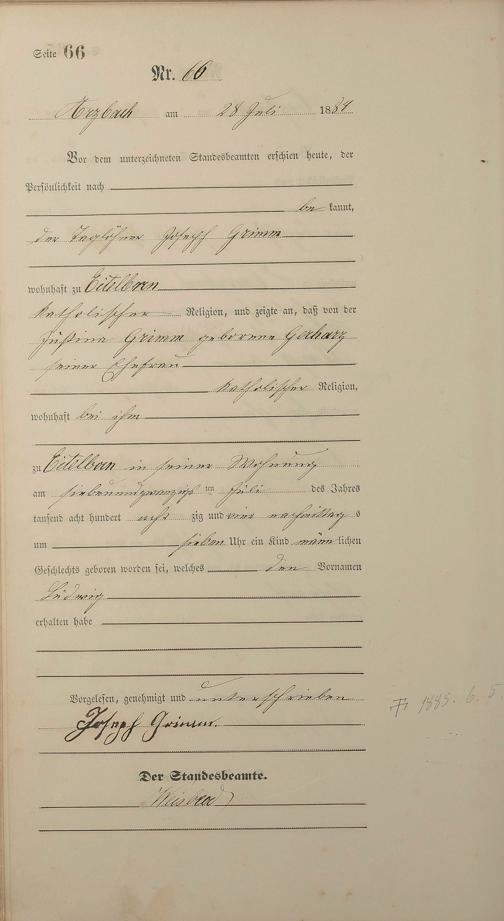 Seite 66
Nr. 66
Arzbach am 28 Juli 1884
Vor dem unterzeichneten Standesbeamten erschien heute, der
Persönlichkeit nach
be kannt,
der Taglöhner Joseph Grimm
wohnhaft zu Eitelborn
katholischer Religion, und zeigte an, daß von der
Justina Grimm geborene Gerharz
seiner Ehefrau
katholischer Religion,
wohnhaft bei ihm
zu Eitelborn in seiner Wohnung
am siebenundzwanzigs ten Juli des Jahres
tausend acht hundert acht zig und vier nachmittag s
um sieben Uhr ein Kind männ lichen
Geschlechts geboren worden sei, welches den Vornamen
Ludwig
erhalten habe
Vorgelesen, genehmigt und unterschrieben
Joseph Grimm.
1885. 6. 5.
Der Standesbeamte.